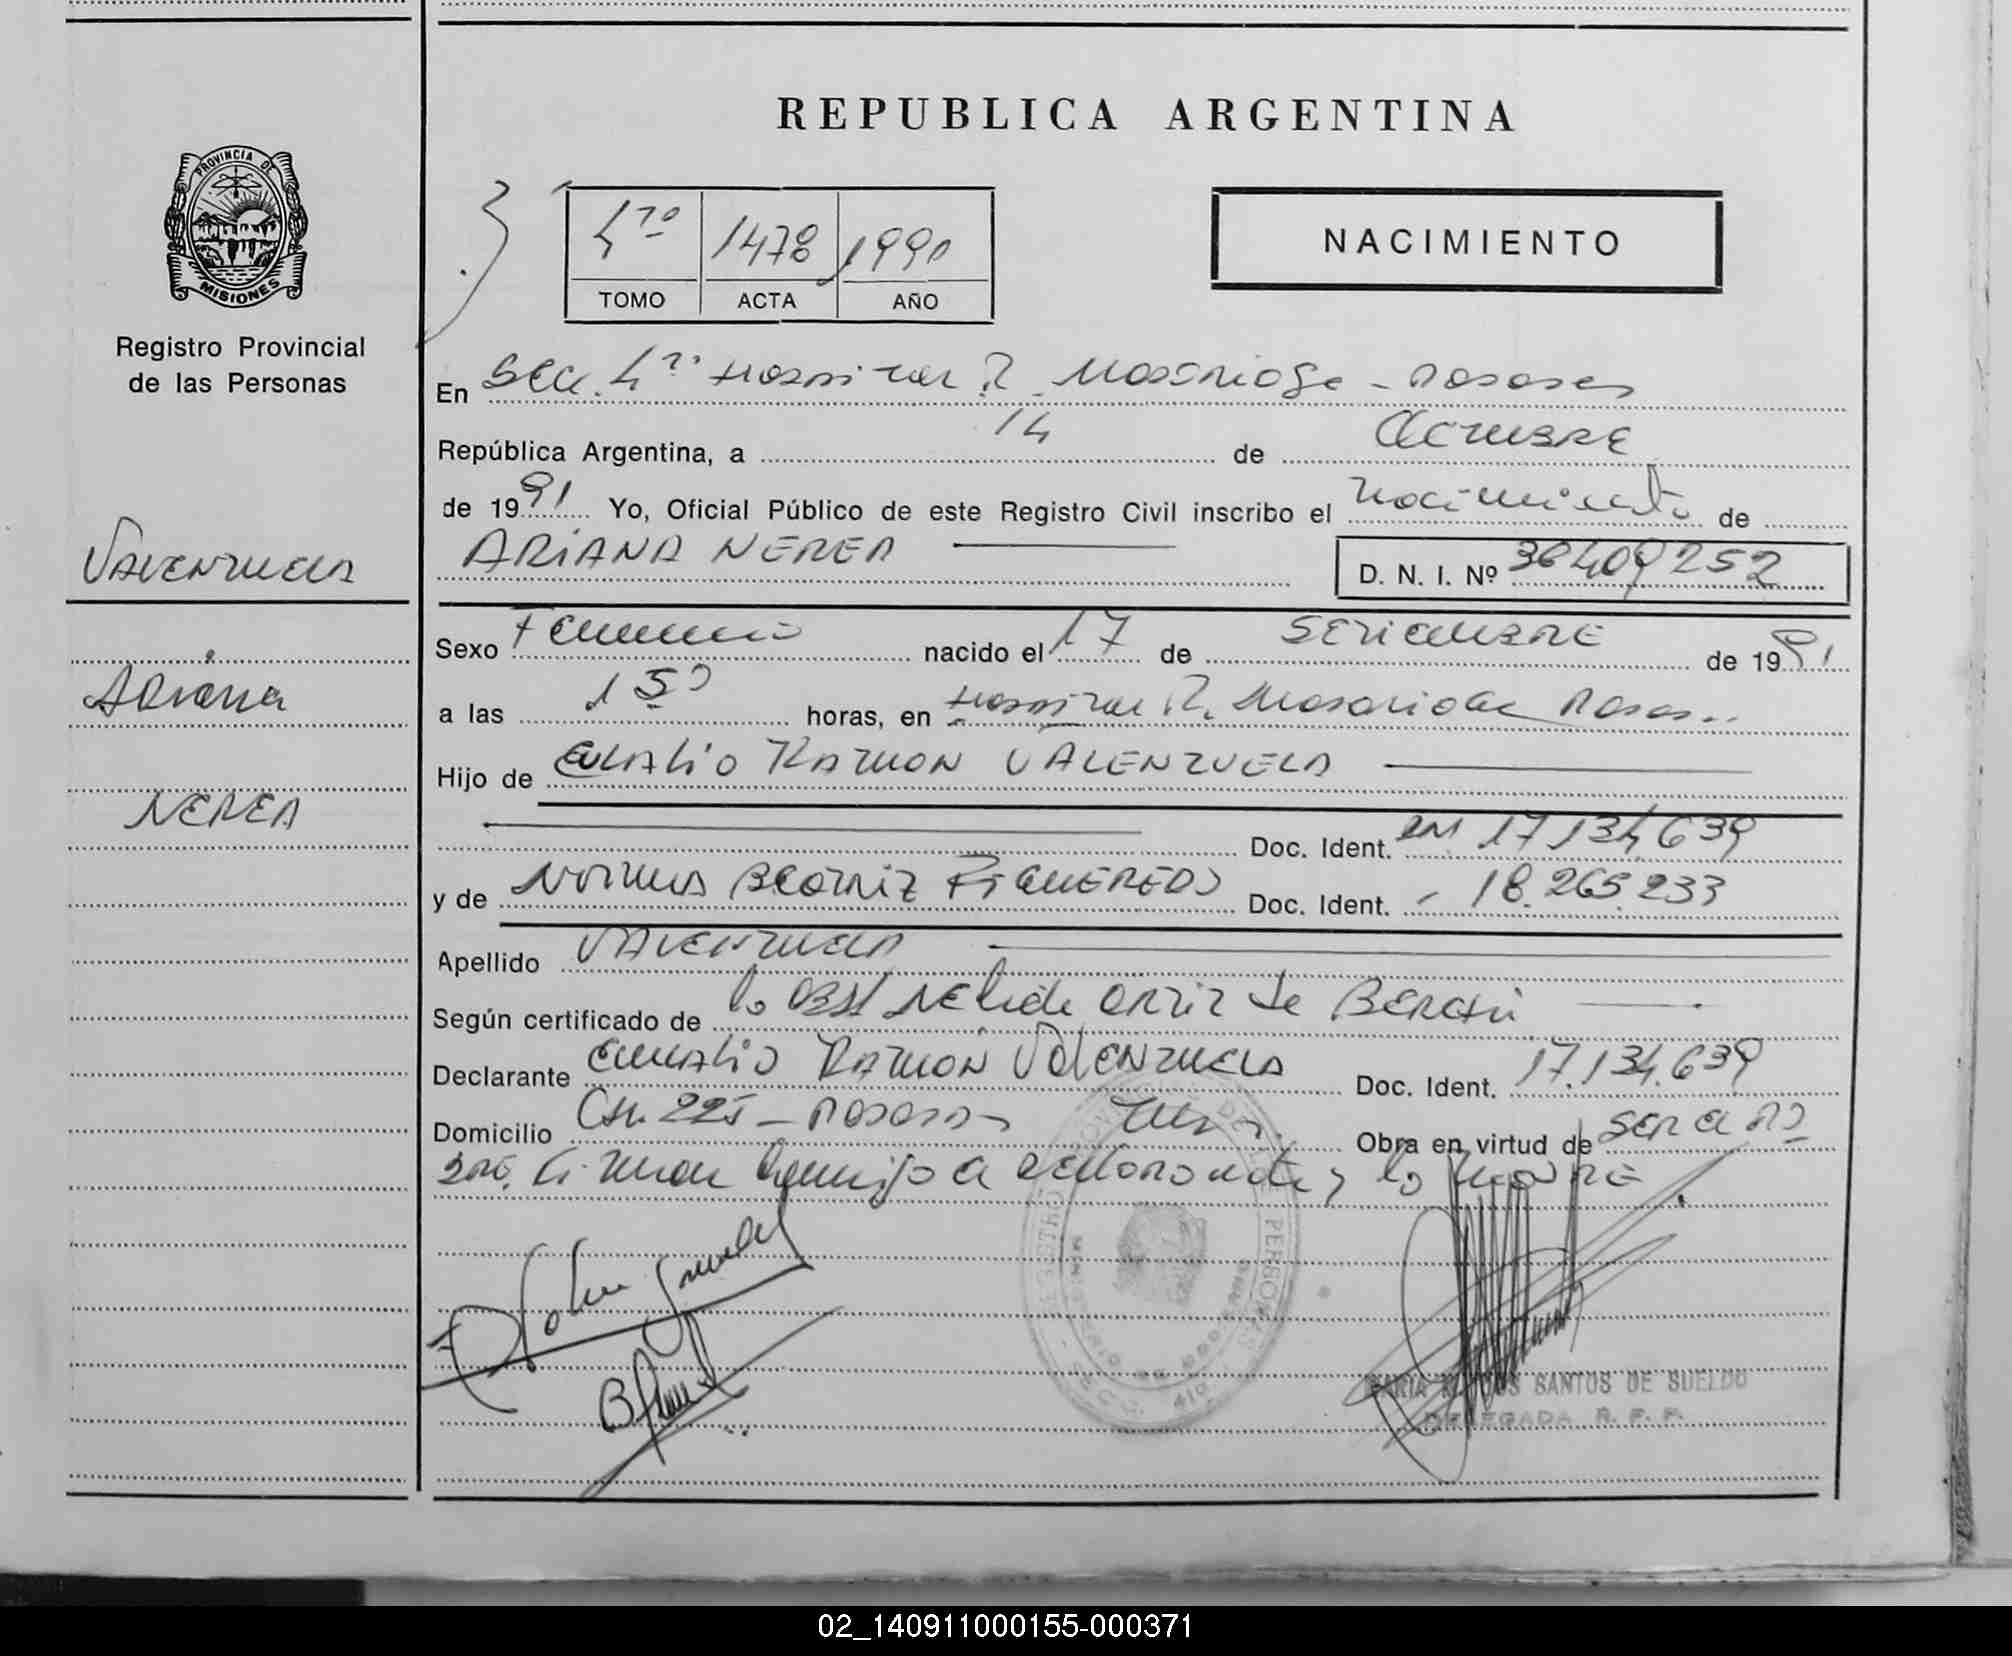 REPUBLICA ARGENTINA
PROVINCIA DE
MISIONES
Registro Provincial
de las Personas
4to 1478 1991
TOMO ACTA AÑO
NACIMIENTO
En Sec. 4ta Hospital R. Madariaga - Posadas
República Argentina, a 14 de Octubre
de 1991 Yo, Oficial Público de este Registro Civil inscribo el nacimiento de
ARIANA NEREA
D. N. I. Nº 36409252
VALENZUELA
Ariana
NEREA
Sexo Femenino nacido el 17 de SETIEMBRE de 1991
a las horas, en Hospital R. Madariaga Posadas
Hijo de EULALIO RAMON VALENZUELA
Doc. Ident. 17.134.639
y de NORMA BEATRIZ FIGUEREDO Doc. Ident. 18.265.233
Apellido VALENZUELA
Según certificado de la Obst NELIDA ORTIZ de
Declarante EULALIO RAMON VALENZUELA Doc. Ident. 17.134.639
Domicilio Ch. 225 - POSADAS Obra en virtud de
conmigo el declarante y la MADRE
SANTOS DE SUELDO
DELEGADA R. P. P.
02_140911000155-000371